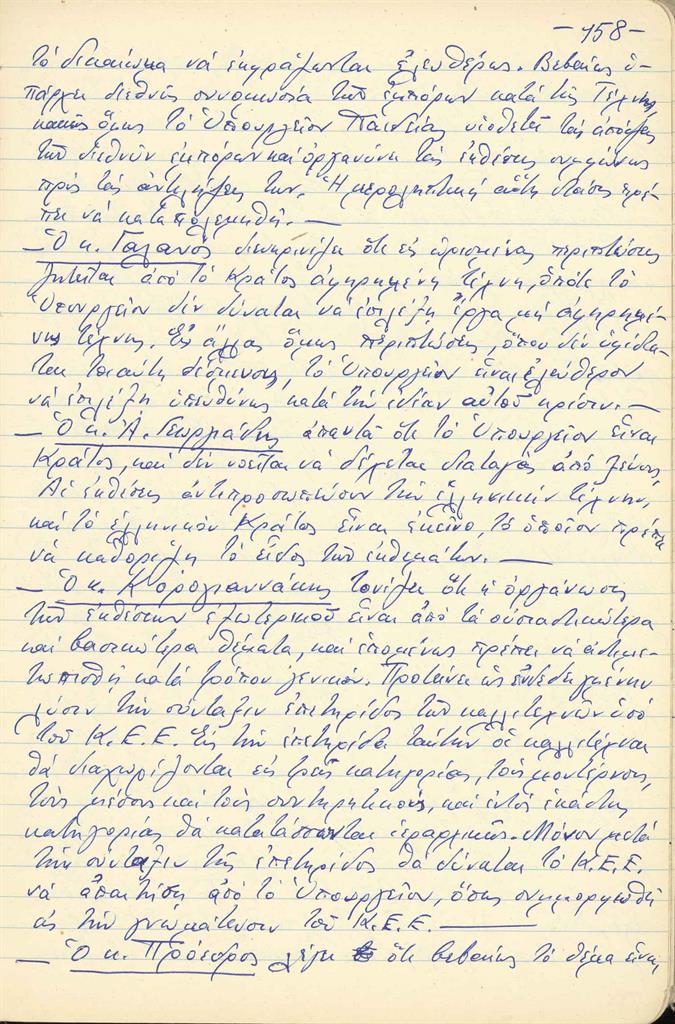 -158-
τὸ δικαίωμα νὰ ἐκφράζωνται ἐλευθέρως. Βεβαίως ὑ-
πάρχει διεθνὴς συνομωσία τῶν ἐμπόρων κατὰ τῆς Τέχνης,
κακῶς ὅμως τὸ Ὑπουργεῖον Παιδείας υἱοθετεῖ τὰς ἀπόψεις
τῶν διεθνῶν ἐμπόρων καὶ ὀργανώνει τὰς ἐκθέσεις συμφώνως
πρὸς τὰς ἀντιλήψεις των. Ἡ μεροληπτικὴ αὕτη στάσις πρέ-
πει νὰ καταπολεμηθῇ. —
— Ὁ κ. Γαλανὸς διευκρινίζει ὅτι εἰς ὡρισμένας περιπτώσεις
ζητεῖται ἀπὸ τὸ Κράτος ἀφηρημένη τέχνη, ὁπότε τὸ
Ὑπουργεῖον δὲν δύναται νὰ ἐπιλέξῃ ἔργα μὴ ἀφηρημέ-
νης τέχνης. Εἰς ἄλλας ὅμως περιπτώσεις, ὅπου δὲν ὑφίστα-
ται τοιαύτη δέσμευσις, τὸ Ὑπουργεῖον εἶναι ἐλεύθερον
νὰ ἐπιλέξῃ ὑπευθύνως κατὰ τὴν ἰδίαν αὐτοῦ κρίσιν. —
— Ὁ κ. Ἀ. Γεωργιάδης ἀπαντᾶ ὅτι τὸ Ὑπουργεῖον εἶναι
Κράτος, καὶ δὲν νοεῖται νὰ δέχεται διαταγὰς ἀπὸ ξένους.
Αἱ ἐκθέσεις ἀντιπροσωπεύουν τὴν ἑλληνικὴν τέχνην,
καὶ τὸ ἑλληνικὸν Κράτος εἶναι ἐκεῖνο, τὸ ὁποῖον πρέπει
νὰ καθορίζῃ τὸ εἶδος τῶν ἐκθεμάτων. —
— Ὁ κ. Κορογιαννάκης τονίζει ὅτι ἡ ὀργάνωσις
τῶν ἐκθέσεων ἐξωτερικοῦ εἶναι ἀπὸ τὰ οὐσιαστικώτερα
καὶ βασικώτερα θέματα, καὶ ἑπομένως πρέπει νὰ ἀντιμε-
τωπισθῇ κατὰ τρόπον γενικόν. Προτείνει ὡς ἐνδεδειγμένην
λύσιν τὴν σύνταξιν ἐπετηρίδος τῶν καλλιτεχνῶν ὑπὸ
τοῦ Κ.Ε.Ε. Εἰς τὴν ἐπετηρίδα ταύτην οἱ καλλιτέχναι
θὰ διαχωρίζονται εἰς τρεῖς κατηγορίας, τοὺς μοντέρνους,
τοὺς μέσους καὶ τοὺς συντηρητικούς, καὶ ἐντὸς ἑκάστης
κατηγορίας θὰ κατατάσσωνται ἱεραρχικῶς. Μόνον μετὰ
τὴν σύνταξιν τῆς ἐπετηρίδος θὰ δύναται τὸ Κ.Ε.Ε.
νὰ ἀπαιτήσῃ ἀπὸ τὸ Ὑπουργεῖον, ὅπως συμμορφωθῇ
εἰς τὴν γνωμάτευσιν τοῦ Κ.Ε.Ε. —
— Ὁ κ. Πρόεδρος λέγει ὅτι βεβαίως τὸ θέμα εἶναι